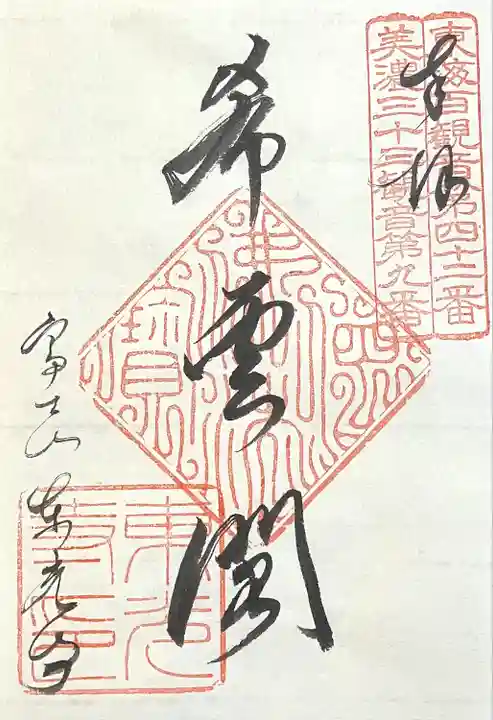 東海百観音第四十二番
美濃三十三観音第九番
奉拝
希雲閣
富士山 東光寺
東光寺印